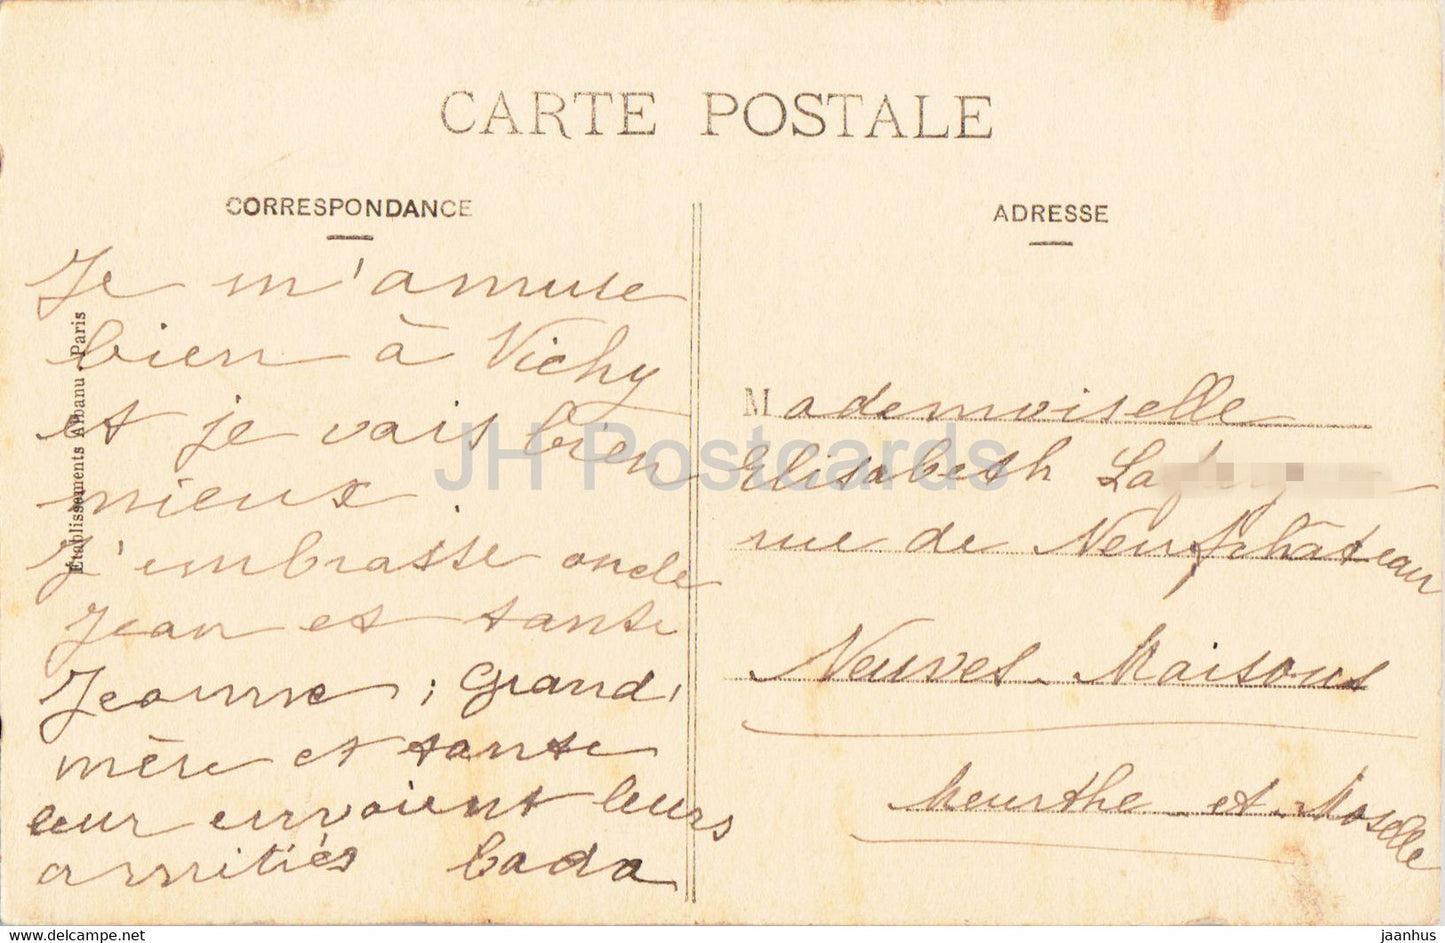 CARTE POSTALE
CORRESPONDANCE
Je m'amuse
bien à Vichy
et je vais bien
mieux.
J'embrasse oncle
Jean et tante
Jeanne ; Grand
mère et tante
leur envoient leurs
amitiés Cada
Etablissements Albanu. Paris
ADRESSE
Mademoiselle
Elisabeth
rue de Neufchâteau
Neuves-Maisons
Meurthe et Moselle
JH Postcards
www.jaanhus.com
jaanhus